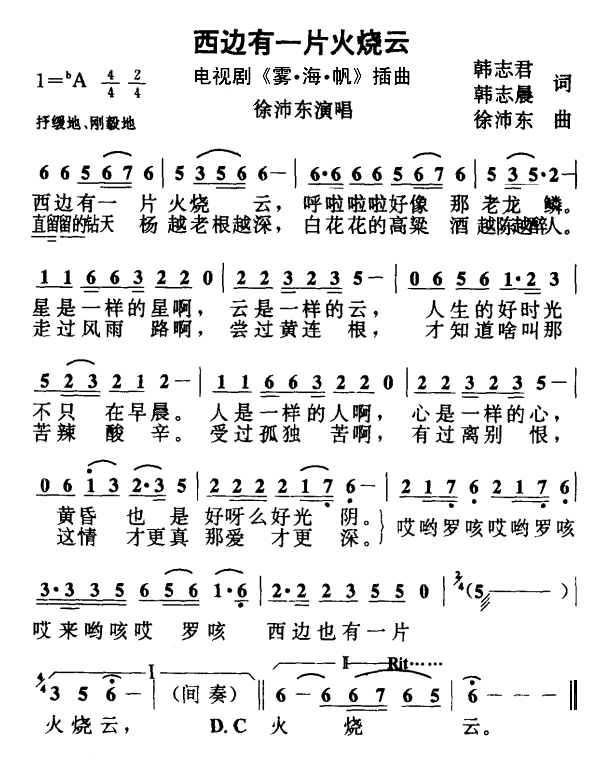 西边有一片火烧云
1=ᵇA 4/4 2/4
电视剧《雾·海·帆》插曲
韩志君
韩志晨 词
徐沛东 曲
抒缓地、刚毅地
徐沛东演唱
6 6 5 6 7 6 | 5 3 5 6 6 – | 6·6 6 6 5 6 7 6 | 5 3 5·2 – |
西边有一 片火烧 云， 呼啦啦啦好像 那 老龙 鳞。
直留留的钻天 杨 越老根越深， 白花花的高粱 酒 越陈越醉人。
1 1 6 6 3 2 2 0 | 2 2 3 2 3 5 – | 0 6 5 6 1·2 3 |
星是一样的星啊， 云是一样的云， 人生的好时光
走过风雨 路啊， 尝过黄连 根， 才知道啥叫那
5 2 3 2 1 2 – | 1 1 6 6 3 2 2 0 | 2 2 3 2 3 5 – |
不只 在早晨。 人是一样的人啊， 心是一样的心，
苦辣 酸辛。 受过孤独 苦啊， 有过离别 恨，
0 6 1 3 2·3 5 | 2 2 2 2 1 7 6 – | 2 1 7 6 2 1 7 6 |
黄昏 也是 好呀么好光 阴。 哎哟罗咳哎哟罗咳
这情 才更真 那爱 才更 深。
3·3 3 5 6 5 6 1·6 | 2·2 2 3 5 5 0 | 2/4 (5 – – –) |
哎来哟咳哎 罗咳 西边也有一片
I II Rit……
4/4 3 5 6 – | – – – – | (间奏) ‖ 6 – 6 6 7 6 5 | 6 – – – ‖
火烧云， D.C 火 烧 云。